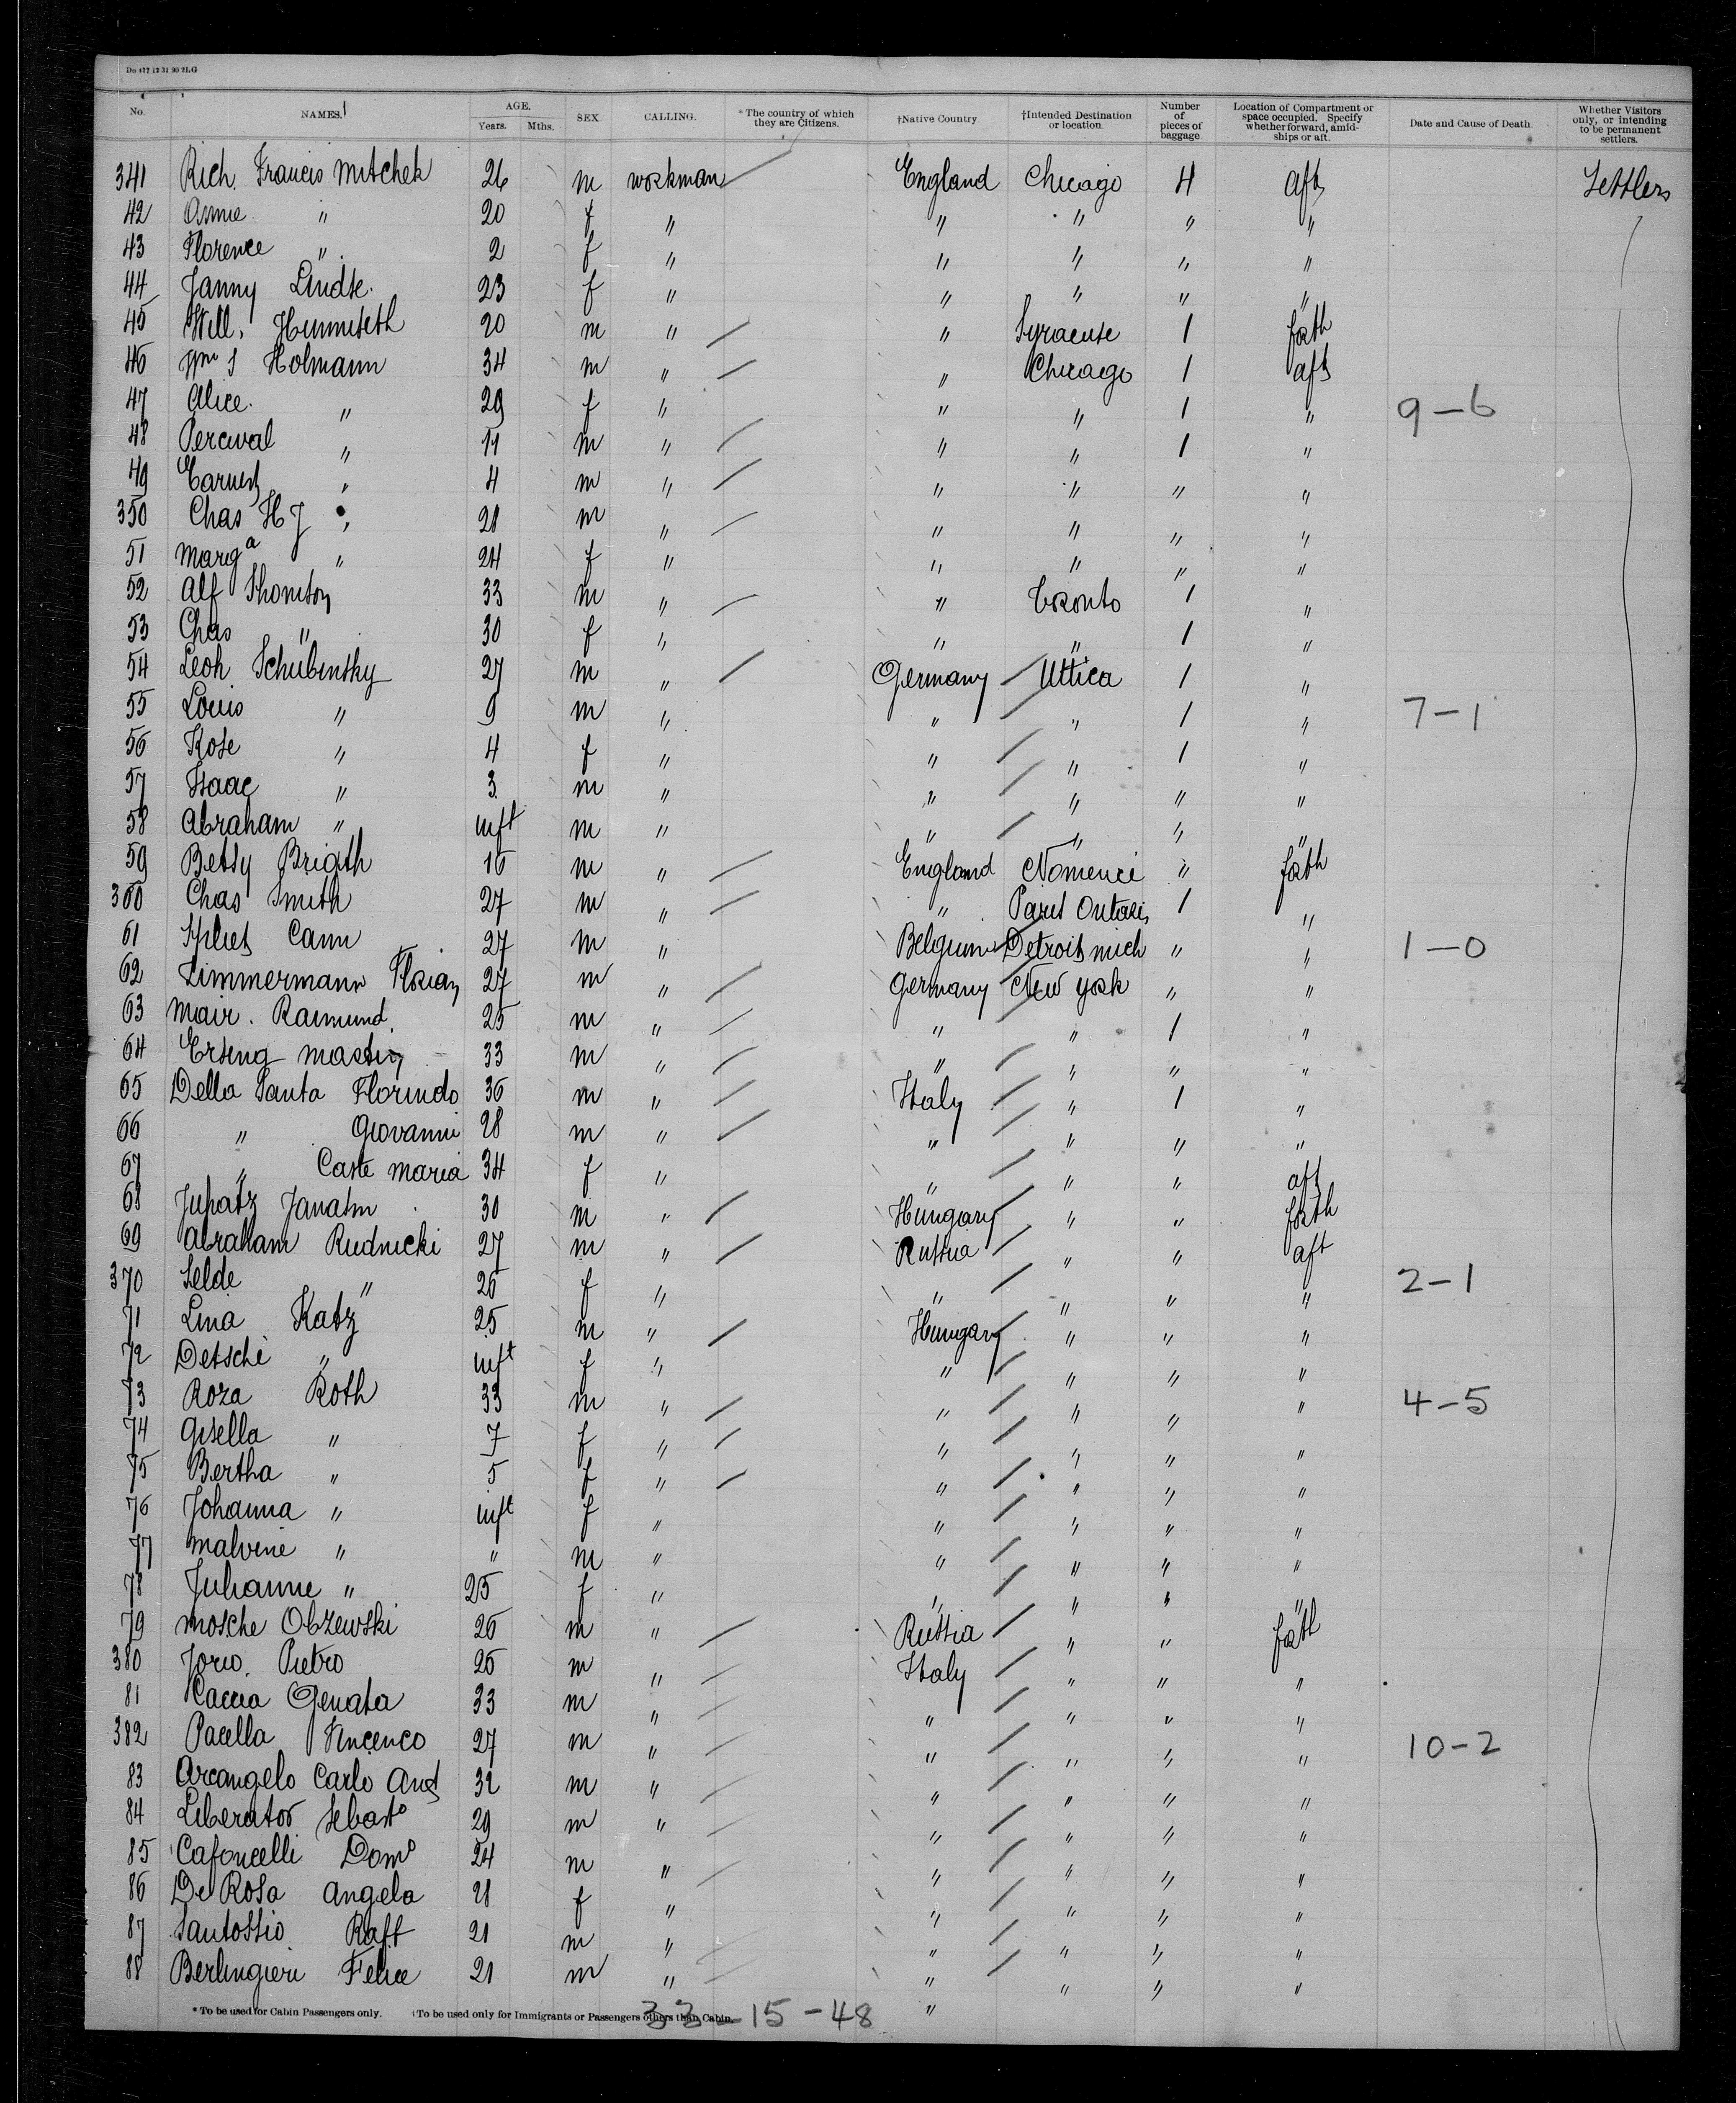 Do 477 12 31 90 2LG
No. NAMES. AGE. Years. Mths. SEX. CALLING. * The country of which they are Citizens. †Native Country †Intended Destination or location. Number of pieces of baggage Location of Compartment or space occupied. Specify whether forward, amidships or aft. Date and Cause of Death Whether Visitors only, or intending to be permanent settlers.
341 Rich. Francis Mitchek 26 m workman England Chicago 4 aft Settlers
42 Annie " 20 f " " " " "
43 Florence " 2 f " " " " "
44 Fanny Lindte 23 f " " " " "
45 Will. 20 m " " Syracuse 1 forth
46 Wm S Holmann 34 m " " Chicago 1 aft
47 Alice " 29 f " " " 1 " 9-6
48 Percival " 11 m " " " 1 "
49 Earnest " 4 m " " " " "
350 Chas H J " 21 m " " " " "
51 Marga " 24 f " " " " "
52 Alf Thomton 33 m " " Toronto 1 "
53 Chas " 30 f " " " 1 "
54 Leoh Schübensky 27 m " Germany Uttica 1 "
55 Louis " 9 m " " " 1 " 7-1
56 Rose " 4 f " " " 1 "
57 Isaac " 3 m " " " " "
58 Abraham " inft m " " " " "
59 Betsy Brigth 16 m " England " forth
360 Chas Smith 27 m " " Paris Ontario 1 "
61 Cann 27 m " Belgium Detroit mich " " 1-0
62 Zimmermann Florian 27 m " Germany New York " "
63 Mair. Raimund 25 m " " " 1 "
64 Ersing Martin 33 m " " " " "
65 Della Santa Florindo 36 m " Italy " 1 "
66 " Giovanni 28 m " " " " "
67 " Caste Maria 34 f " " " " aft
68 Juhatz 30 m " Hungary " " forth
69 Abraham Rudnicki 27 m " Russia " " aft
370 Selde " 26 f " " " " " 2-1
71 Lina Katz 25 m " Hungary " " "
72 Detsche " inft f " " " " "
73 Roza Roth 33 m " " " " " 4-5
74 Gisella " 7 f " " " " "
75 Bertha " 5 f " " " " "
76 Johanna " inft f " " " " "
77 Malvine " " m " " " " "
78 Juhanne " 25 f " " " " "
79 Mosche Obzewski 26 m " Russia " " forth
380 Jorio. Pietro 26 m " Italy " " "
81 Caccia Genata 33 m " " " " "
382 Pacella Vincenco 27 m " " " " " 10-2
83 Arcangelo Carlo And 32 m " " " " "
84 Liberator Sebasto 29 m " " " " "
85 Cafoncelli Domo 24 m " " " " "
86 De Rosa Angela 21 f " " " " "
87 Santossio Raff 21 m " " " " "
88 Berlingieri Felice 21 m " " " " "
* To be used for Cabin Passengers only. †To be used only for Immigrants or Passengers others than Cabin. 33-15-48 "